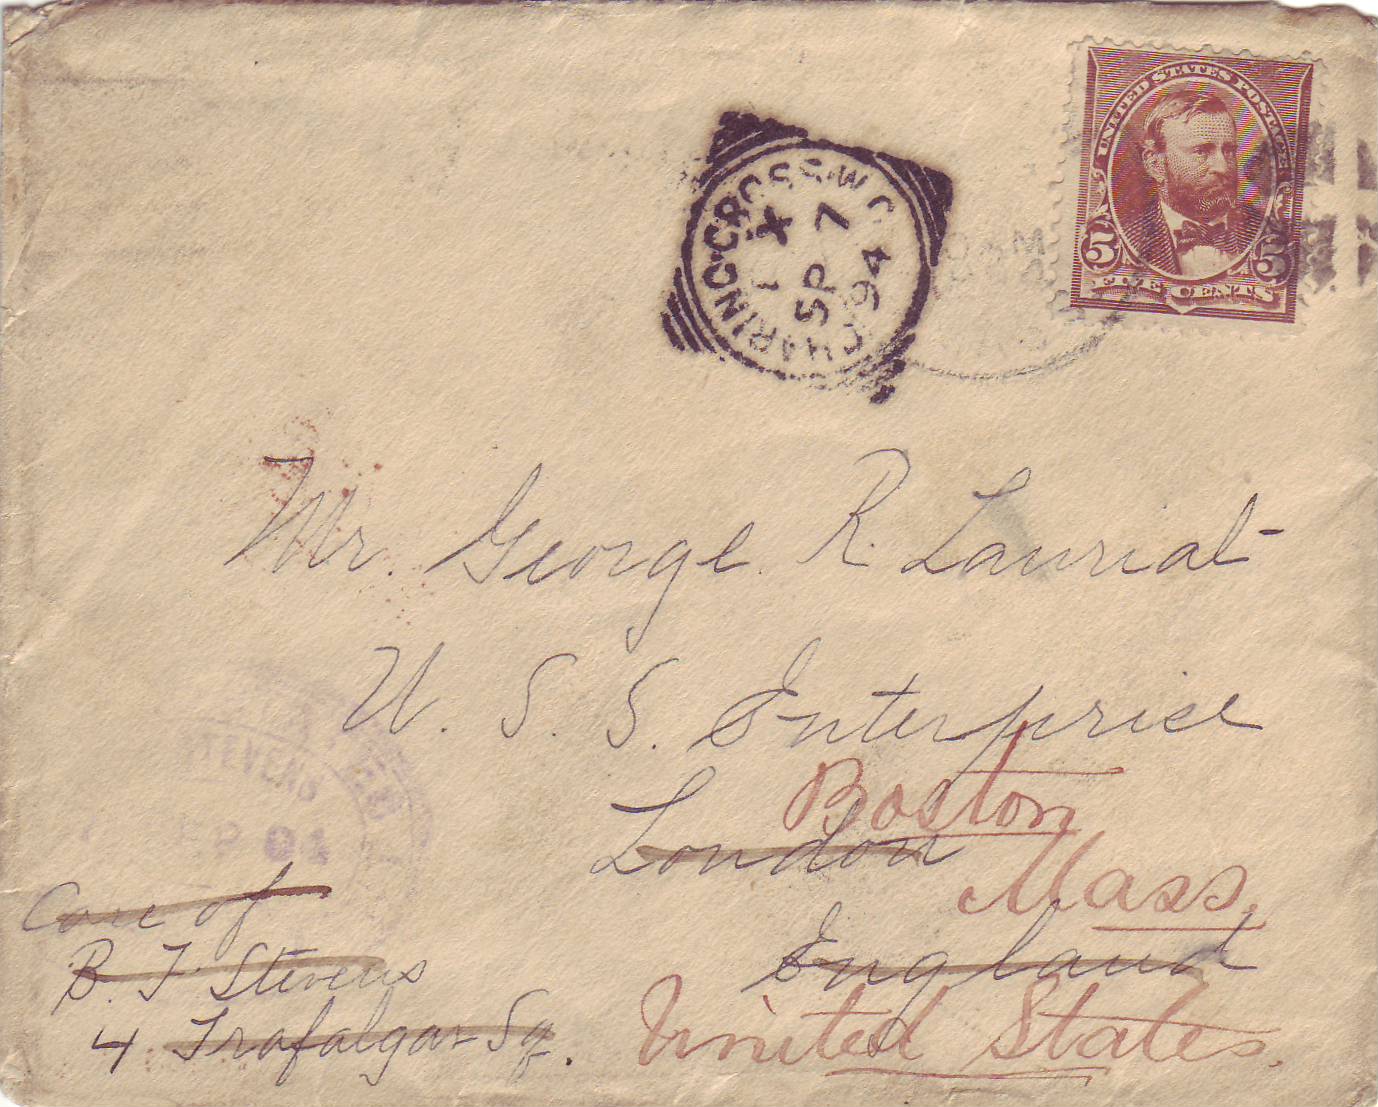 UNITED STATES POSTAGE
5 5
FIVE CENTS
CHARING·CROSS·W.C.
X
SP 7
94
Mr. George R. Lauriat
U. S. S. Enterprise
London
Boston
Mass.
England
United States.
Care of
B. F. Stevens
4 Trafalgar Sq.
STEVENS